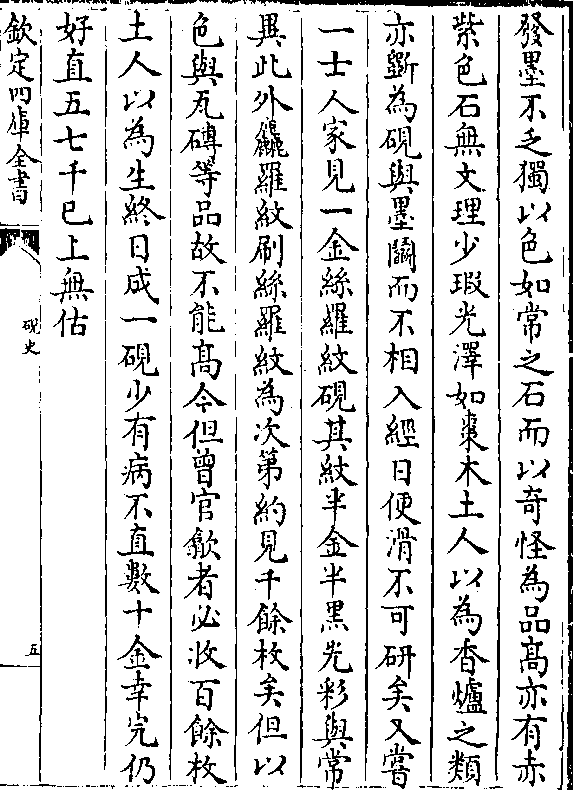 發墨不乏獨以色如常之石而以奇怪為品髙亦有赤
紫色石無文理少瑕光澤如棗木土人以為杳爐之類
亦斵為硯與墨鬭而不相入經日便滑不可研矣又嘗
一士人家見一金絲羅紋硯其紋半金半黒光彩與常
異此外麤羅紋刷絲羅紋為次第約見千餘枚矣但以
色與瓦磚等品故不能髙今但曾官歙者必收百餘枚
土人以為生終日成一硯少有病不直數十金幸完仍
好直五七千已上無估
欽定四庫全書
硯史
五